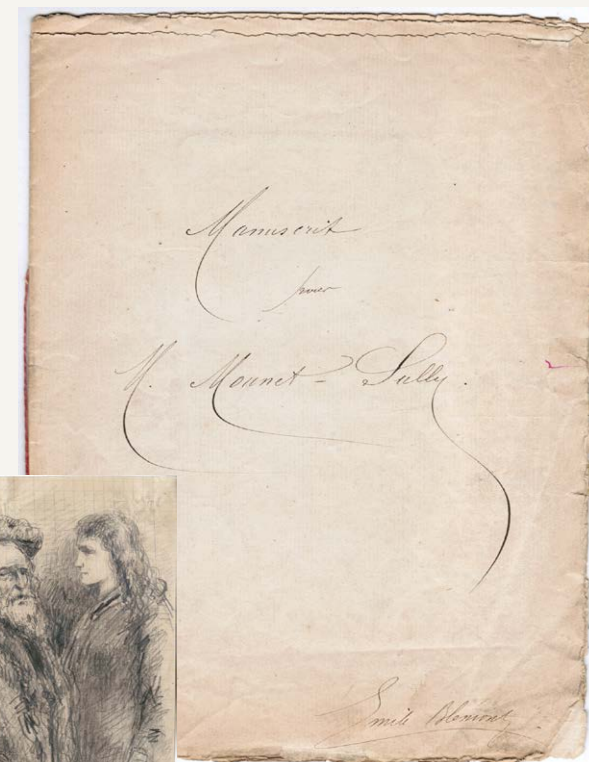 Manuscrit
pour
M. Mounet-Sully.
Emile Blémont